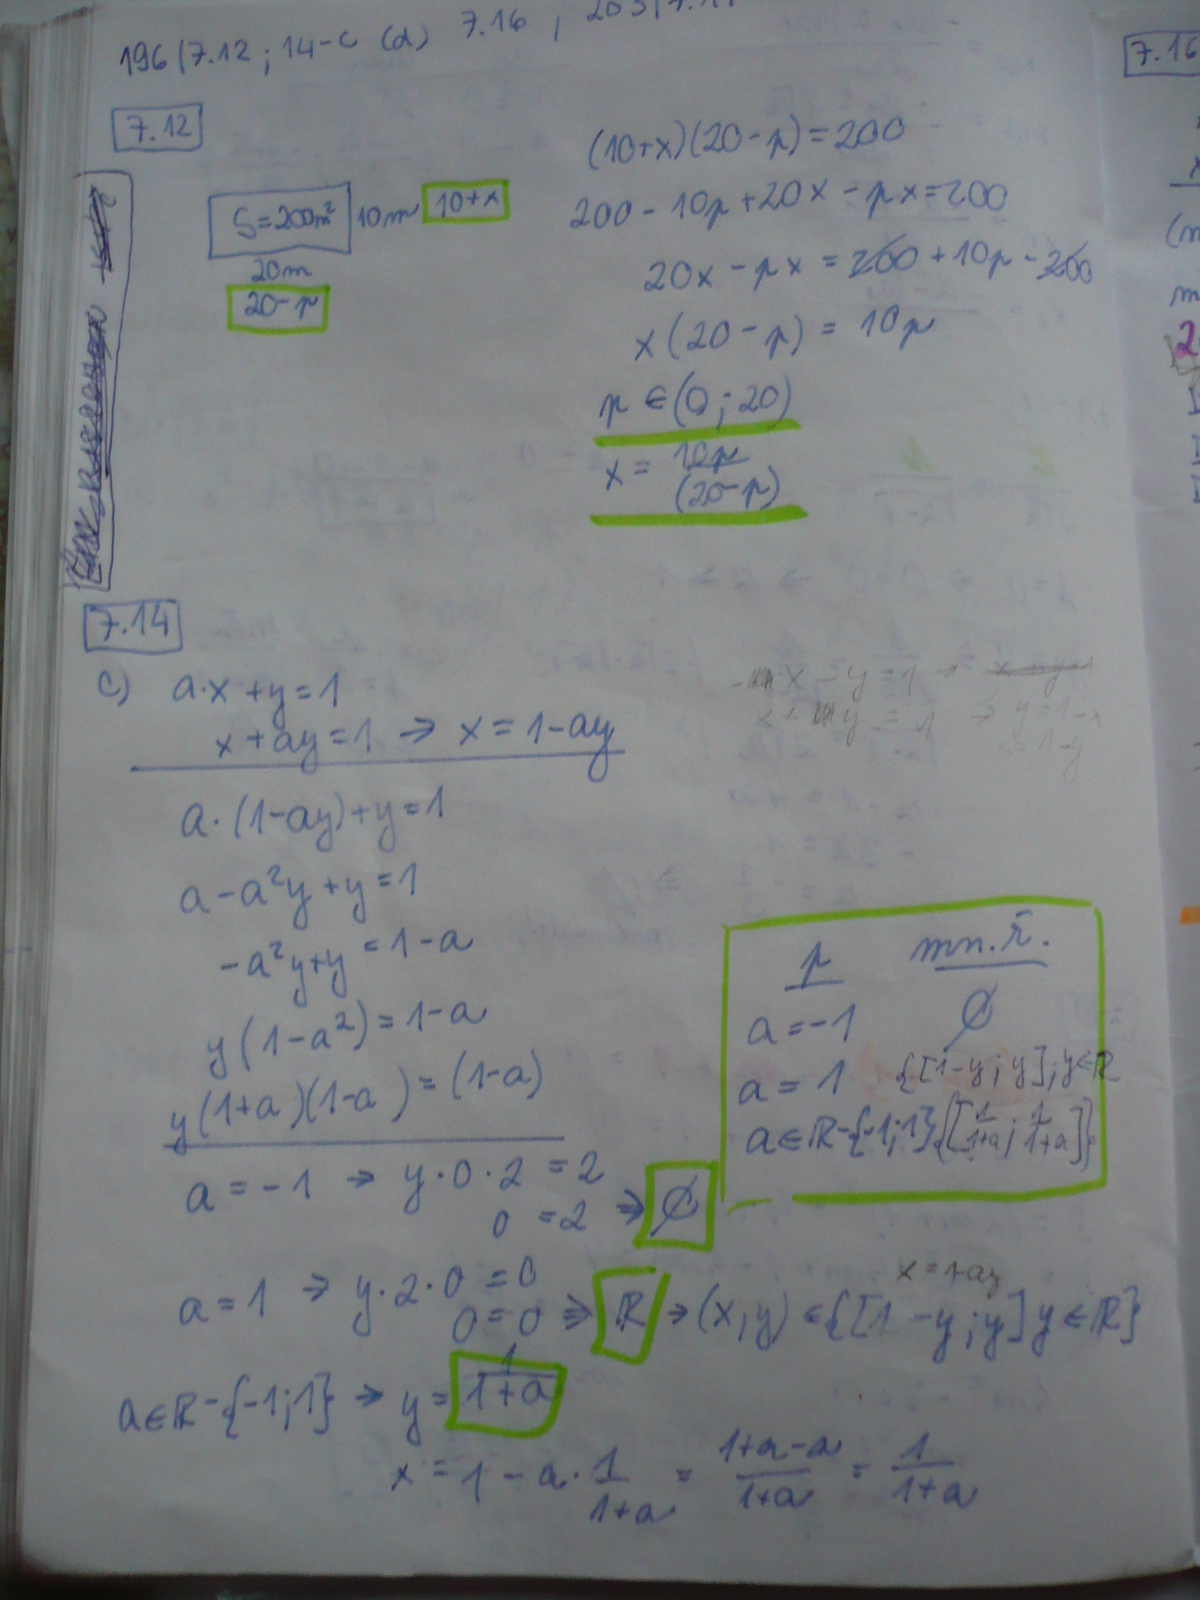 196/7.12 ; 14-c (d) 7.16 ,
7.12
S=200m² 10m 10+x
20m
20-p
(10+x)(20-p)=200
200-10p+20x-px=200
20x-px=200+10p-200
x(20-p)=10p
p∈(0;20)
x=10p/(20-p)
7.14
c) a·x+y=1
x+ay=1 → x=1-ay
a·(1-ay)+y=1
a-a²y+y=1
-a²y+y=1-a
y(1-a²)=1-a
y(1+a)(1-a)=(1-a)
a=-1 → y·0·2=2
0=2 ⇒ ∅
a=1 → y·2·0=0
0=0 ⇒ ℝ → (x,y)∈{[1-y;y]y∈ℝ}
a∈ℝ-{-1;1} → y=1/(1+a)
x=1-a·1/(1+a)=(1+a-a)/(1+a)=1/(1+a)
x-y=1 →
y=1 → y=1-x
1-y
p mn.ř.
a=-1 ∅
a=1 {[1-y;y];y∈ℝ
a∈ℝ-{-1;1} {[1/(1+a);1/(1+a)]}
7.16
2